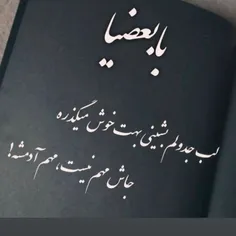 با بعضیا
لب جدولم بشینی بهت خوش میگذره
جاش مهم نیست، مهم آدمشه!